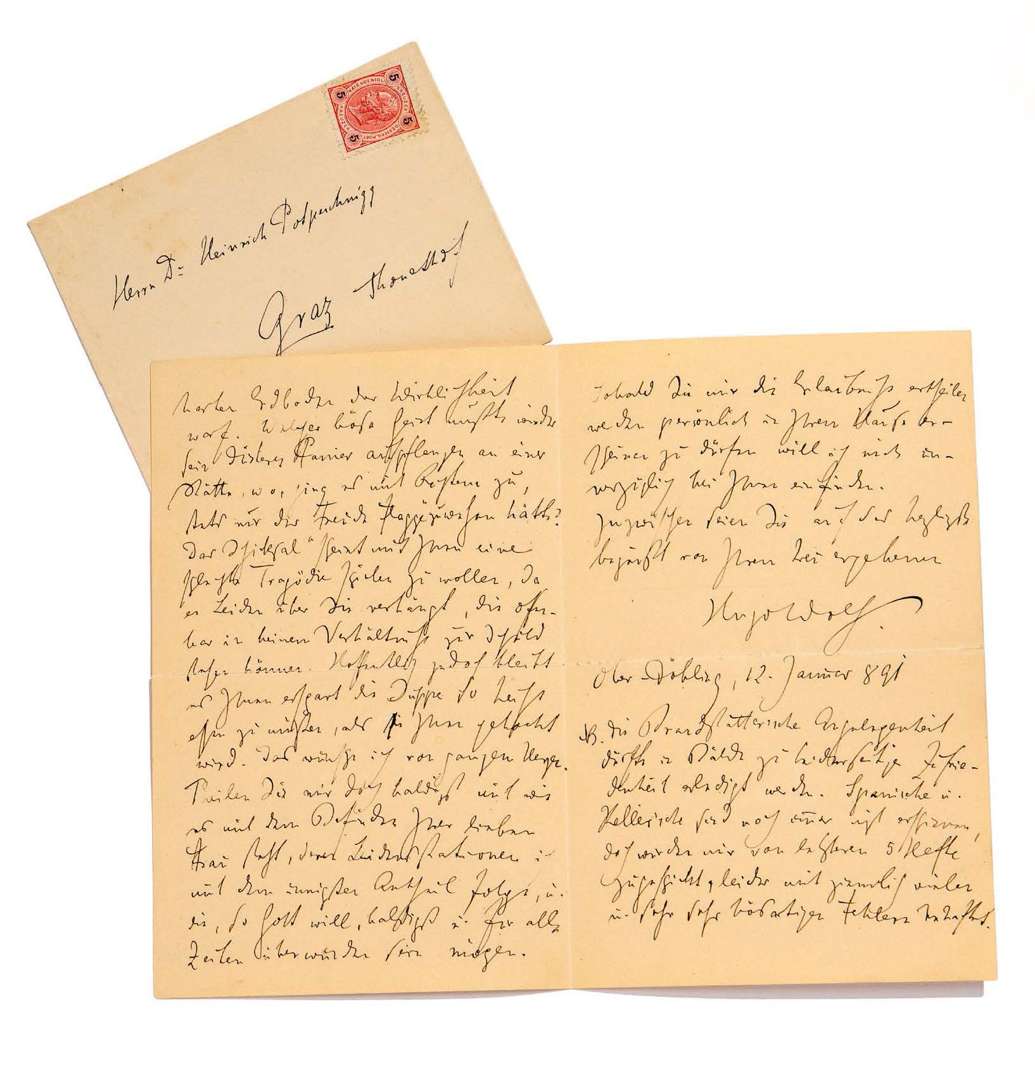 Herrn Dr Heinrich Potpeschnigg
Graz
harten Erdboden der Wirklichkeit
warf. Welcher böse Geist mußte wieder
sein düsteres Panier aufpflanzen an einer
Stätte, wo, ging es mit Rechtem zu,
stets nur die Freude
Das Schicksal scheint mit Ihnen eine
schlechte Tragödie spielen zu wollen, da
es Leiden über Sie verhängt, die offen-
bar in keinem Verhältniß zur Schuld
stehen können. Hoffentlich jedoch bleibt
es Ihnen erspart die Suppe so heiß
essen zu müssen, als sie Ihnen gekocht
wird. Das wünsche ich von ganzem Herzen.
Theilen Sie mir doch baldigst mit wie
es mit dem Befinden Ihrer lieben
Frau steht, deren Leidensstationen ich
mit dem innigsten Antheil folge, u.
die, so Gott will, baldigst u. für alle
Zeiten überwunden sein mögen.
sobald Sie mir die Erlaubniß ertheilen
werden persönlich in Ihrem Hause er-
scheinen zu dürfen will ich mich un-
verzüglich bei Ihnen einfinden.
Inzwischen seien Sie auf das herzlichste
begrüßt von Ihrem treu ergebenen
Hugo Wolf.
Ober-Döbling, 12. Januar 891
NB. Die Brandstätterische Angelegenheit
dürfte in Bälde zu beiderseitiger Zufrie-
denheit erledigt werden. Spanische u.
Kellerische sind noch immer nicht erschienen,
doch wurden mir von letzteren 5 Hefte
zugeschickt, leider mit ziemlich vielen
u. sehr sehr bösartigen Fehlern behaftet.
5
5
5
5